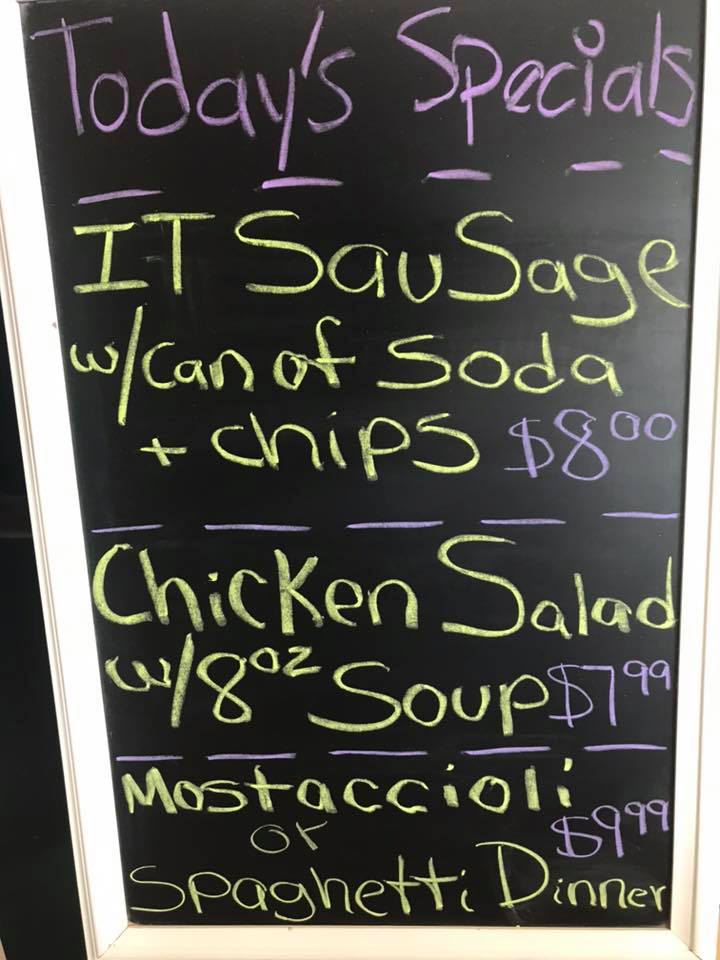 Today's Specials
IT Sausage
w/can of soda
+ chips $8.00
Chicken Salad
w/8oz Soup $7.99
Mostaccioli
or $9.99
Spaghetti Dinner